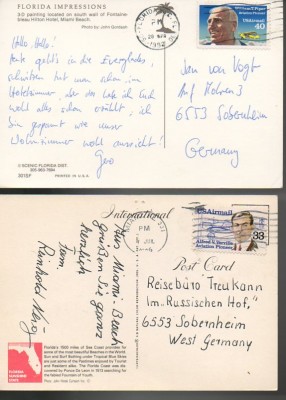 FLORIDA IMPRESSIONS
3-D painting located on south wall of Fontaine-
bleau Hilton Hotel, Miami Beach.
Photo by John Gorbach
Hallo, Hallo!
Heute geht's in die Everglades,
schreiben tut man schon im
Hotelzimmer,
wohl alles schon erzählt, ich
bin gespannt wie unser
Wohnzimmer wohl aussieht!
© SCENIC FLORIDA DIST.
3015F
PRINTED IN U.S.A.
PM
1992
USAirmail
40
Jan van Vogt
Auf
6553 Sobernheim
Germany
International
Aus Miami Beach
grüßen Sie ganz
herzlich
Fam.
Reinhold
PM
USAirmail
Alfred V. Verville
Aviation Pioneer
33
Post Card
Reisebüro Treukann
im „Russischen Hof"
6553 Sobernheim
West Germany
FLORIDA
SUNSHINE
STATE
Florida's 1500 miles of Sea Coast provides for
some of the most beautiful Beaches in the World.
Sun and Surf Bathing under Tropical Blue Skies
are just some of the Pastimes enjoyed by Tourist
and Resident alike. The Florida Coast was dis-
covered by Ponce De Leon in 1513 searching for
the fabled Fountain of Youth.